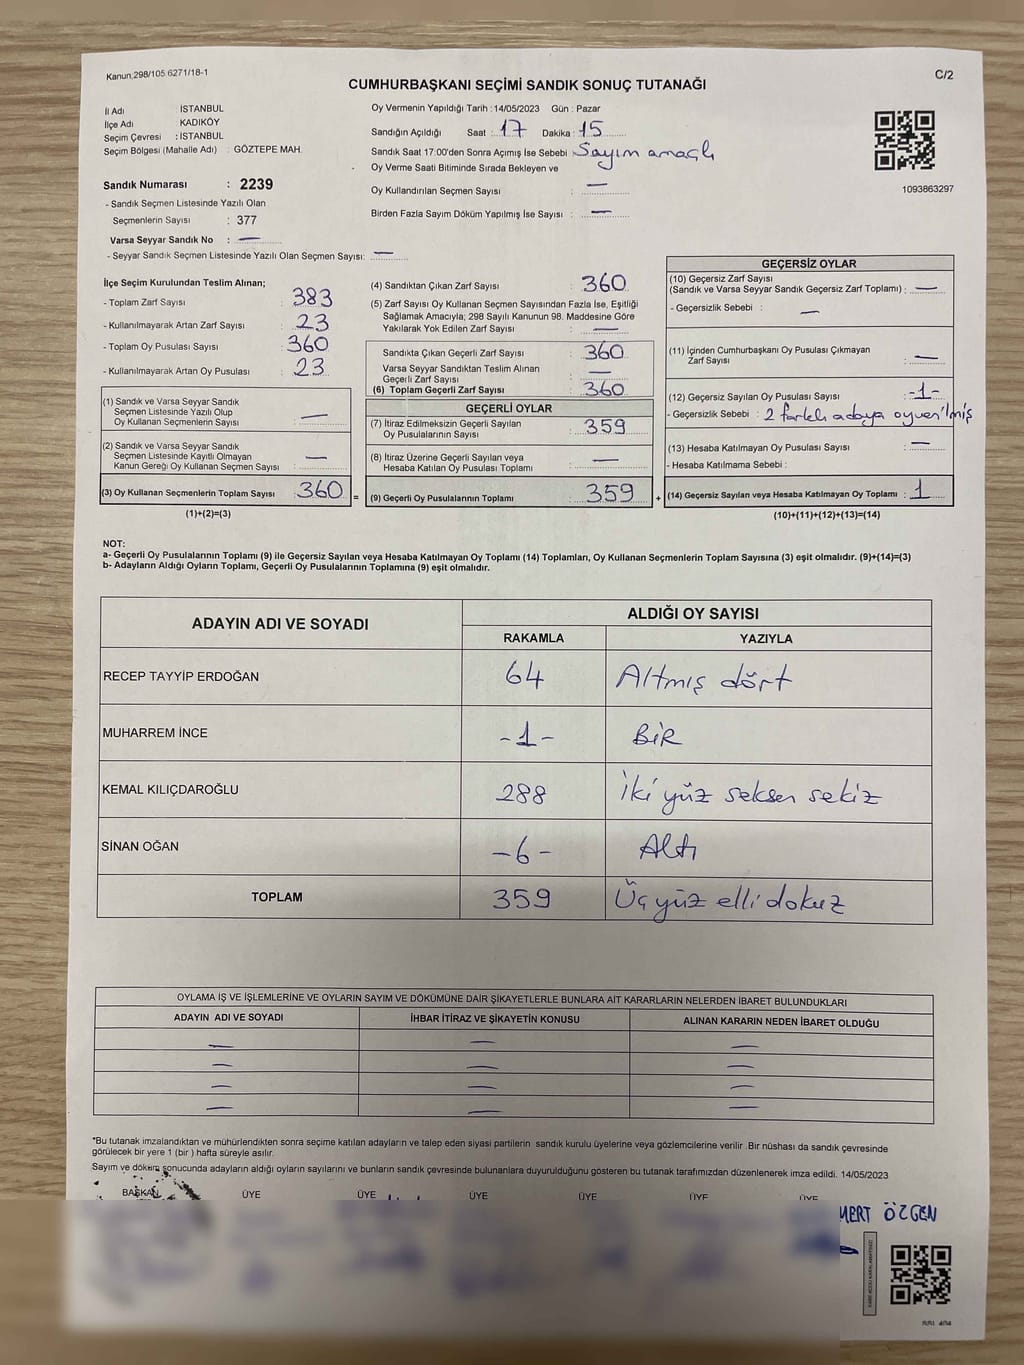 Kanun,298/105 6271/18-1
C/2
CUMHURBAŞKANI SEÇİMİ SANDIK SONUÇ TUTANAĞI
İl Adı : İSTANBUL
İlçe Adı : KADIKÖY
Seçim Çevresi : İSTANBUL
Seçim Bölgesi (Mahalle Adı) : GÖZTEPE MAH.
Sandık Numarası : 2239
- Sandık Seçmen Listesinde Yazılı Olan
Seçmenlerin Sayısı : 377
Varsa Seyyar Sandık No : —
- Seyyar Sandık Seçmen Listesinde Yazılı Olan Seçmen Sayısı: —
Oy Vermenin Yapıldığı Tarih : 14/05/2023 Gün : Pazar
Sandığın Açıldığı Saat : 17 Dakika : 15
Sandık Saat 17:00'den Sonra Açımış İse Sebebi : Sayım amaçlı
Oy Verme Saati Bitiminde Sırada Bekleyen ve
Oy Kullandırılan Seçmen Sayısı : —
Birden Fazla Sayım Döküm Yapılmış İse Sayısı : —
1093863297
İlçe Seçim Kurulundan Teslim Alınan;
- Toplam Zarf Sayısı : 383
- Kullanılmayarak Artan Zarf Sayısı : 23
- Toplam Oy Pusulası Sayısı : 360
- Kullanılmayarak Artan Oy Pusulası : 23
(1) Sandık ve Varsa Seyyar Sandık
Seçmen Listesinde Yazılı Olup
Oy Kullanan Seçmenlerin Sayısı : —
(2) Sandık ve Varsa Seyyar Sandık
Seçmen Listesinde Kayıtlı Olmayan
Kanun Gereği Oy Kullanan Seçmen Sayısı : —
(3) Oy Kullanan Seçmenlerin Toplam Sayısı : 360
(1)+(2)=(3)
=
(4) Sandıktan Çıkan Zarf Sayısı : 360
(5) Zarf Sayısı Oy Kullanan Seçmen Sayısından Fazla İse, Eşitliği
Sağlamak Amacıyla; 298 Sayılı Kanunun 98. Maddesine Göre
Yakılarak Yok Edilen Zarf Sayısı : —
Sandıkta Çıkan Geçerli Zarf Sayısı : 360
Varsa Seyyar Sandıktan Teslim Alınan
Geçerli Zarf Sayısı : —
(6) Toplam Geçerli Zarf Sayısı : 360
GEÇERLİ OYLAR
(7) İtiraz Edilmeksizin Geçerli Sayılan
Oy Pusulalarının Sayısı : 359
(8) İtiraz Üzerine Geçerli Sayılan veya
Hesaba Katılan Oy Pusulası Toplamı : —
(9) Geçerli Oy Pusulalarının Toplamı : 359
+
GEÇERSİZ OYLAR
(10) Geçersiz Zarf Sayısı
(Sandık ve Varsa Seyyar Sandık Geçersiz Zarf Toplamı) : —
- Geçersizlik Sebebi : —
(11) İçinden Cumhurbaşkanı Oy Pusulası Çıkmayan
Zarf Sayısı : —
(12) Geçersiz Sayılan Oy Pusulası Sayısı : -1-
- Geçersizlik Sebebi : 2 farklı adaya oy verilmiş
(13) Hesaba Katılmayan Oy Pusulası Sayısı : —
- Hesaba Katılmama Sebebi :
(14) Geçersiz Sayılan veya Hesaba Katılmayan Oy Toplamı : 1
(10)+(11)+(12)+(13)=(14)
NOT:
a- Geçerli Oy Pusulalarının Toplamı (9) ile Geçersiz Sayılan veya Hesaba Katılmayan Oy Toplamı (14) Toplamları, Oy Kullanan Seçmenlerin Toplam Sayısına (3) eşit olmalıdır. (9)+(14)=(3)
b- Adayların Aldığı Oyların Toplamı, Geçerli Oy Pusulalarının Toplamına (9) eşit olmalıdır.
ADAYIN ADI VE SOYADI
ALDIĞI OY SAYISI
RAKAMLA YAZIYLA
RECEP TAYYİP ERDOĞAN 64 Altmış dört
MUHARREM İNCE -1- BİR
KEMAL KILIÇDAROĞLU 288 İki yüz seksen sekiz
SİNAN OĞAN -6- Altı
TOPLAM 359 Üç yüz elli dokuz
OYLAMA İŞ VE İŞLEMLERİNE VE OYLARIN SAYIM VE DÖKÜMÜNE DAİR ŞİKAYETLERLE BUNLARA AİT KARARLARIN NELERDEN İBARET BULUNDUKLARI
ADAYIN ADI VE SOYADI İHBAR İTİRAZ VE ŞİKAYETİN KONUSU ALINAN KARARIN NEDEN İBARET OLDUĞU
— — —
— — —
— — —
— — —
*Bu tutanak imzalandıktan ve mühürlendikten sonra seçime katılan adayların ve talep eden siyasi partilerin sandık kurulu üyelerine veya gözlemcilerine verilir .Bir nüshası da sandık çevresinde
görülecek bir yere 1 (bir ) hafta süreyle asılır.
Sayım ve döküm sonucunda adayların aldığı oyların sayılarını ve bunların sandık çevresinde bulunanlara duyurulduğunu gösteren bu tutanak tarafımızdan düzenlenerek imza edildi. 14/05/2023
BAŞKAN ÜYE ÜYE ÜYE ÜYE ÜYE ÜYE
MERT ÖZGEN